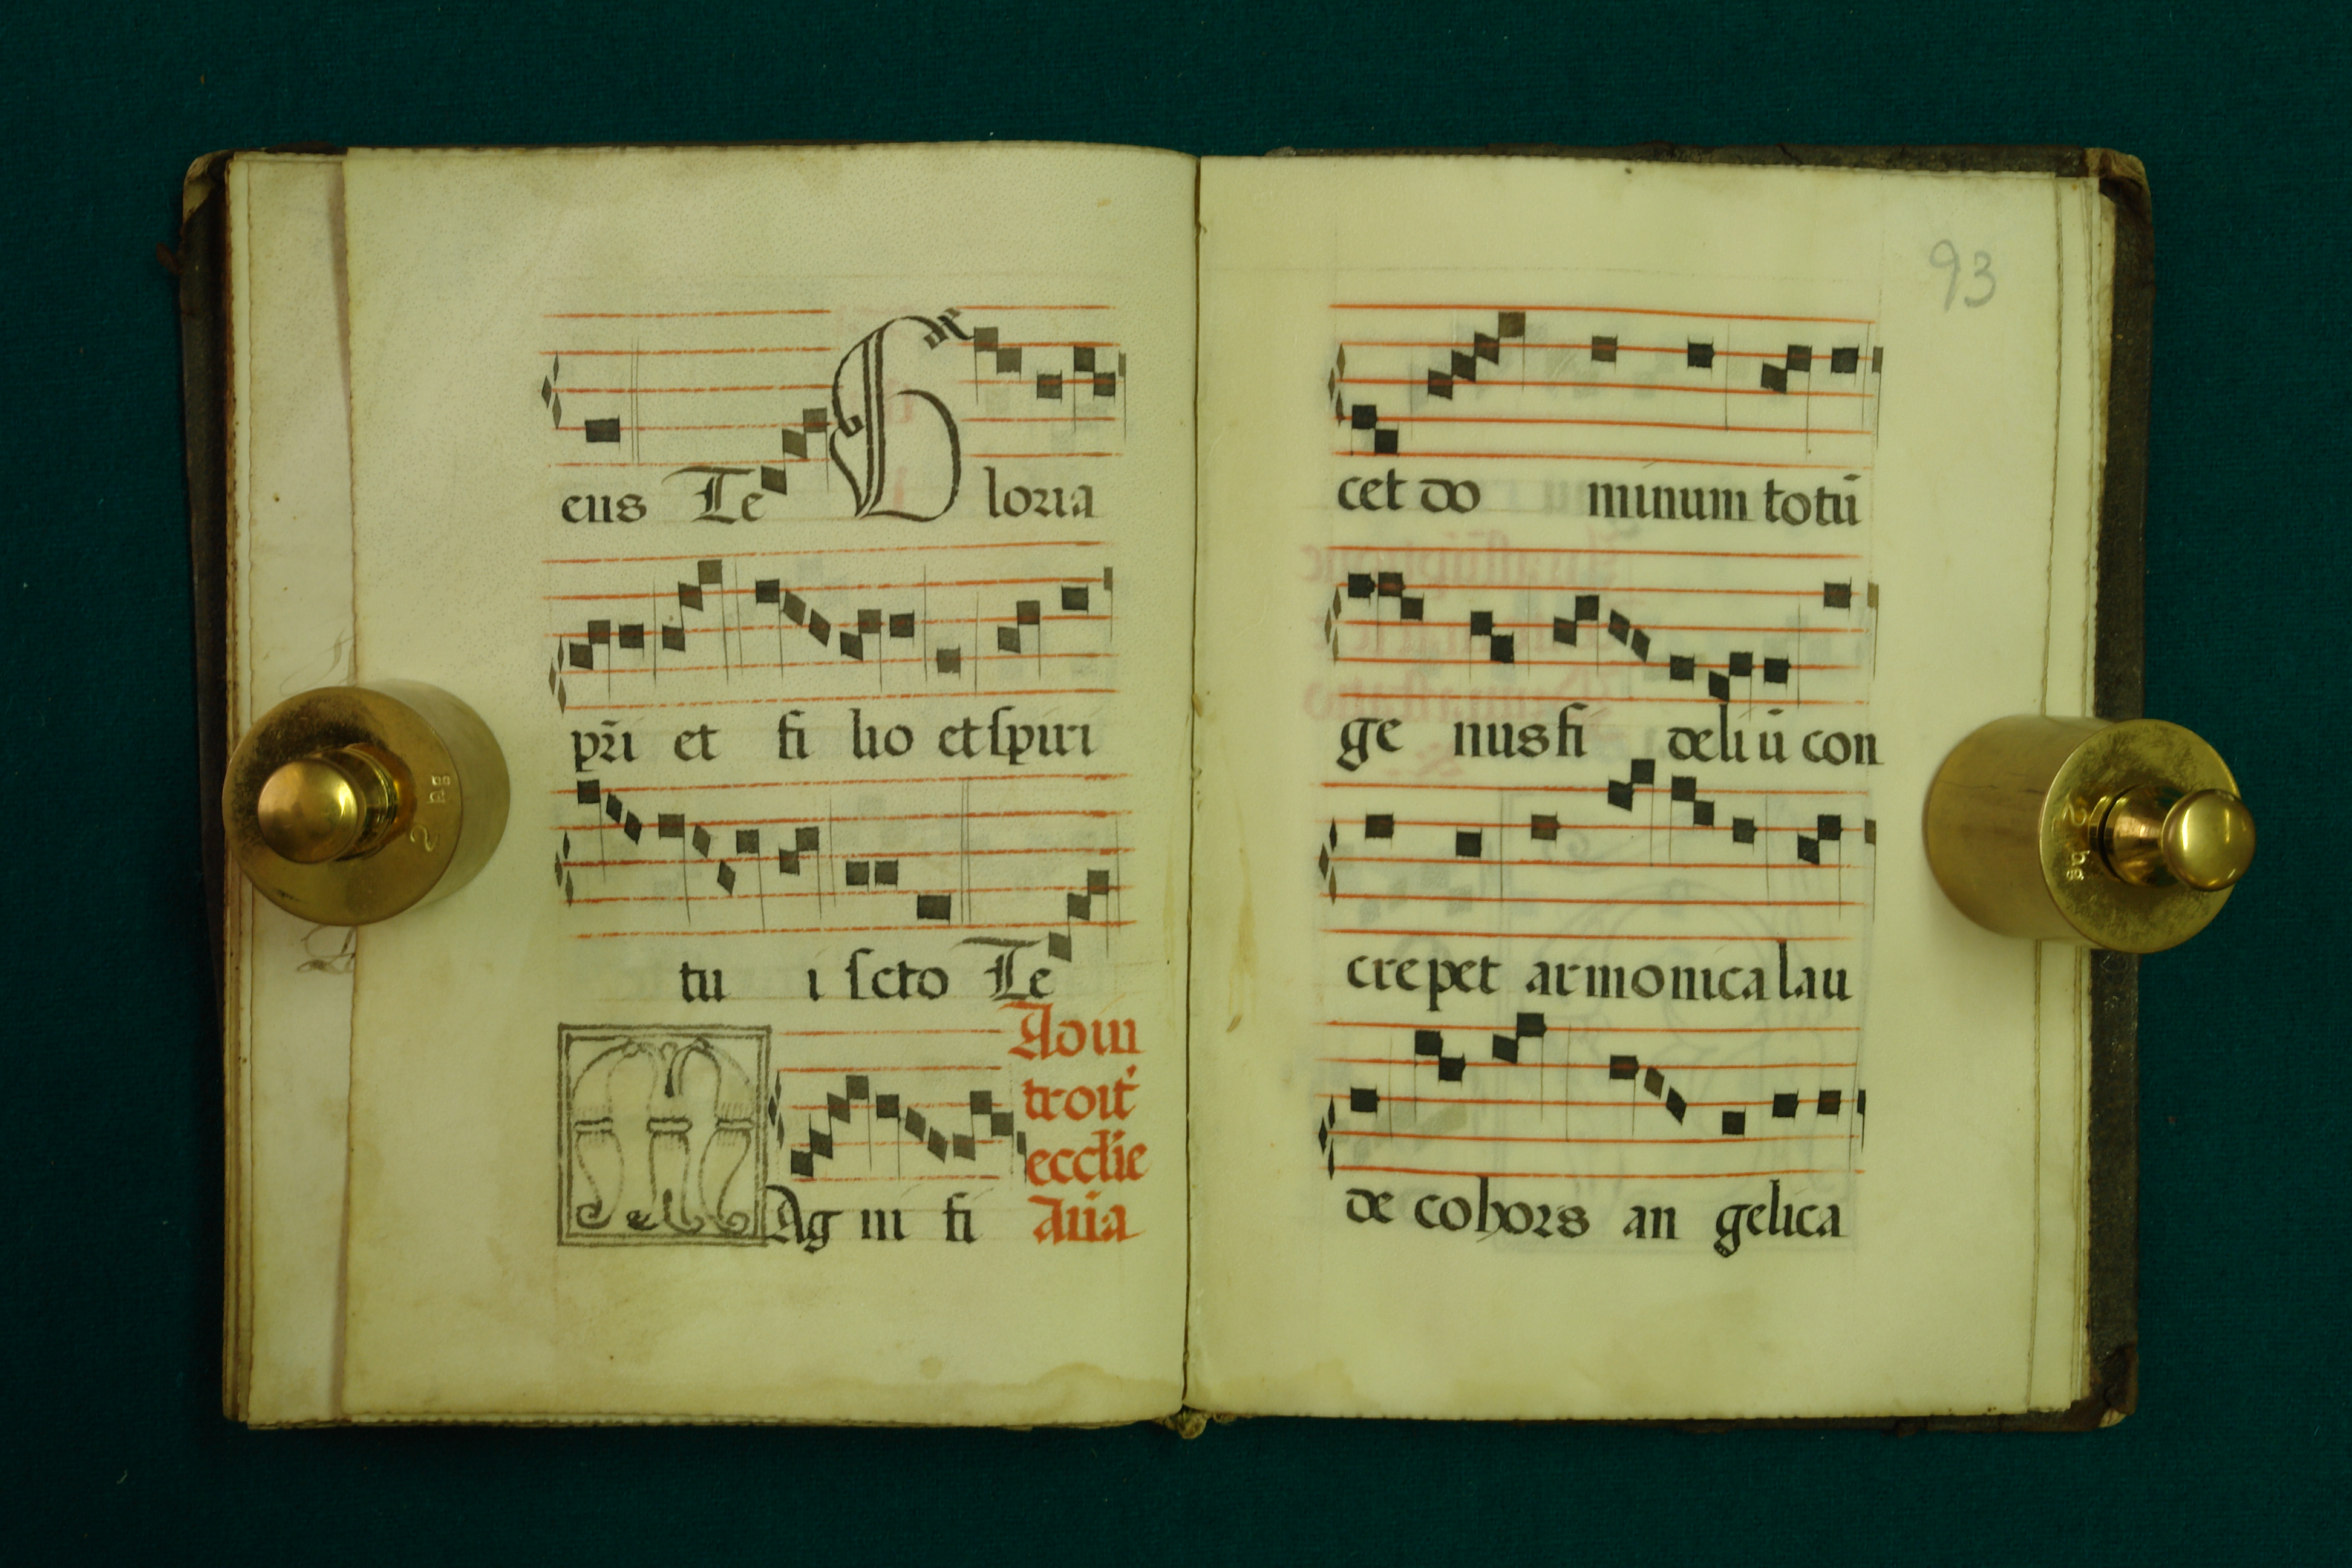 eus Te Gloria
pr̃i et fi lio et spiri
tu i scto Te
Ad in
troit
ecclie
Aña
MAg ni fi
93
cet do minum totũ
ge nus fi deli ũ con
crepet armonica lau
de cohors an gelica
2 kg
2 kg